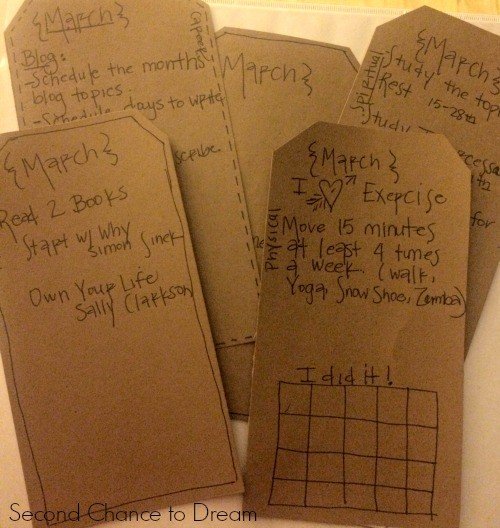 {March}
Blog:
-Schedule the month
blog topics.
-Schedule days to write
scribe.
{March}
{March}
Spiritual
Study the top
Rest 15-28th
Study
for
{March}
Read 2 Books
Start w/ Why
Simon Sinek
Own Your Life
Sally Clarkson
{March}
I Exercise
Physical
Move 15 minutes
at least 4 times
a week. (walk,
Yoga, Snow Shoe, Zumba)
I did it!
Second Chance to Dream